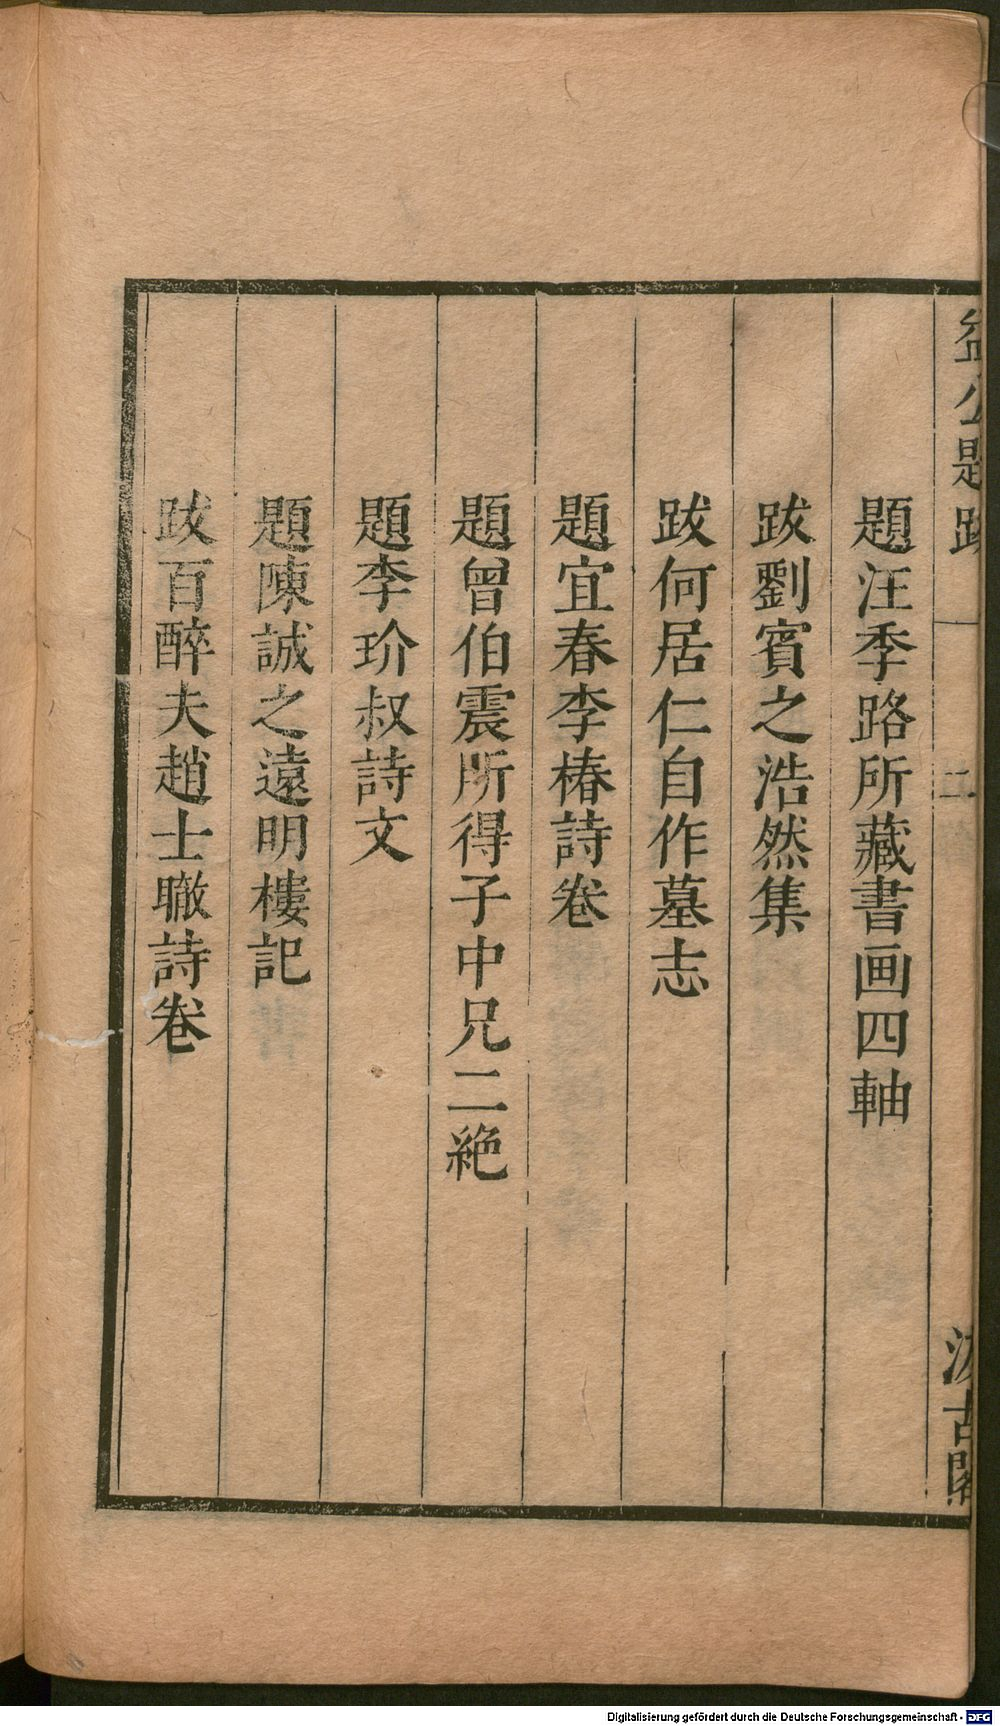 益公題跋
二
汲古閣
題汪季路所藏書画四軸
跋劉賓之浩然集
跋何居仁自作墓志
題宜春李椿詩卷
題曾伯震所得子中兄二絶
題李玠叔詩文
題陳誠之遠明樓記
跋百醉夫趙士𨅊詩卷
Digitalisierung gefördert durch die Deutsche Forschungsgemeinschaft - DFG